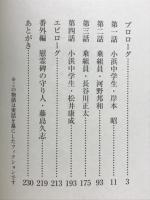 プロローグ 3
第一話 小浜中学生・岸本 昭 11
第二話 乗組員・河野邦和 93
第三話 乗組員・長谷川正太 175
第四話 小浜中学生・松井康成 193
エピローグ 213
番外編 慰霊碑の守り人・藤島久志 219
あとがき 230
※この物語は実話を基にしたフィクションです